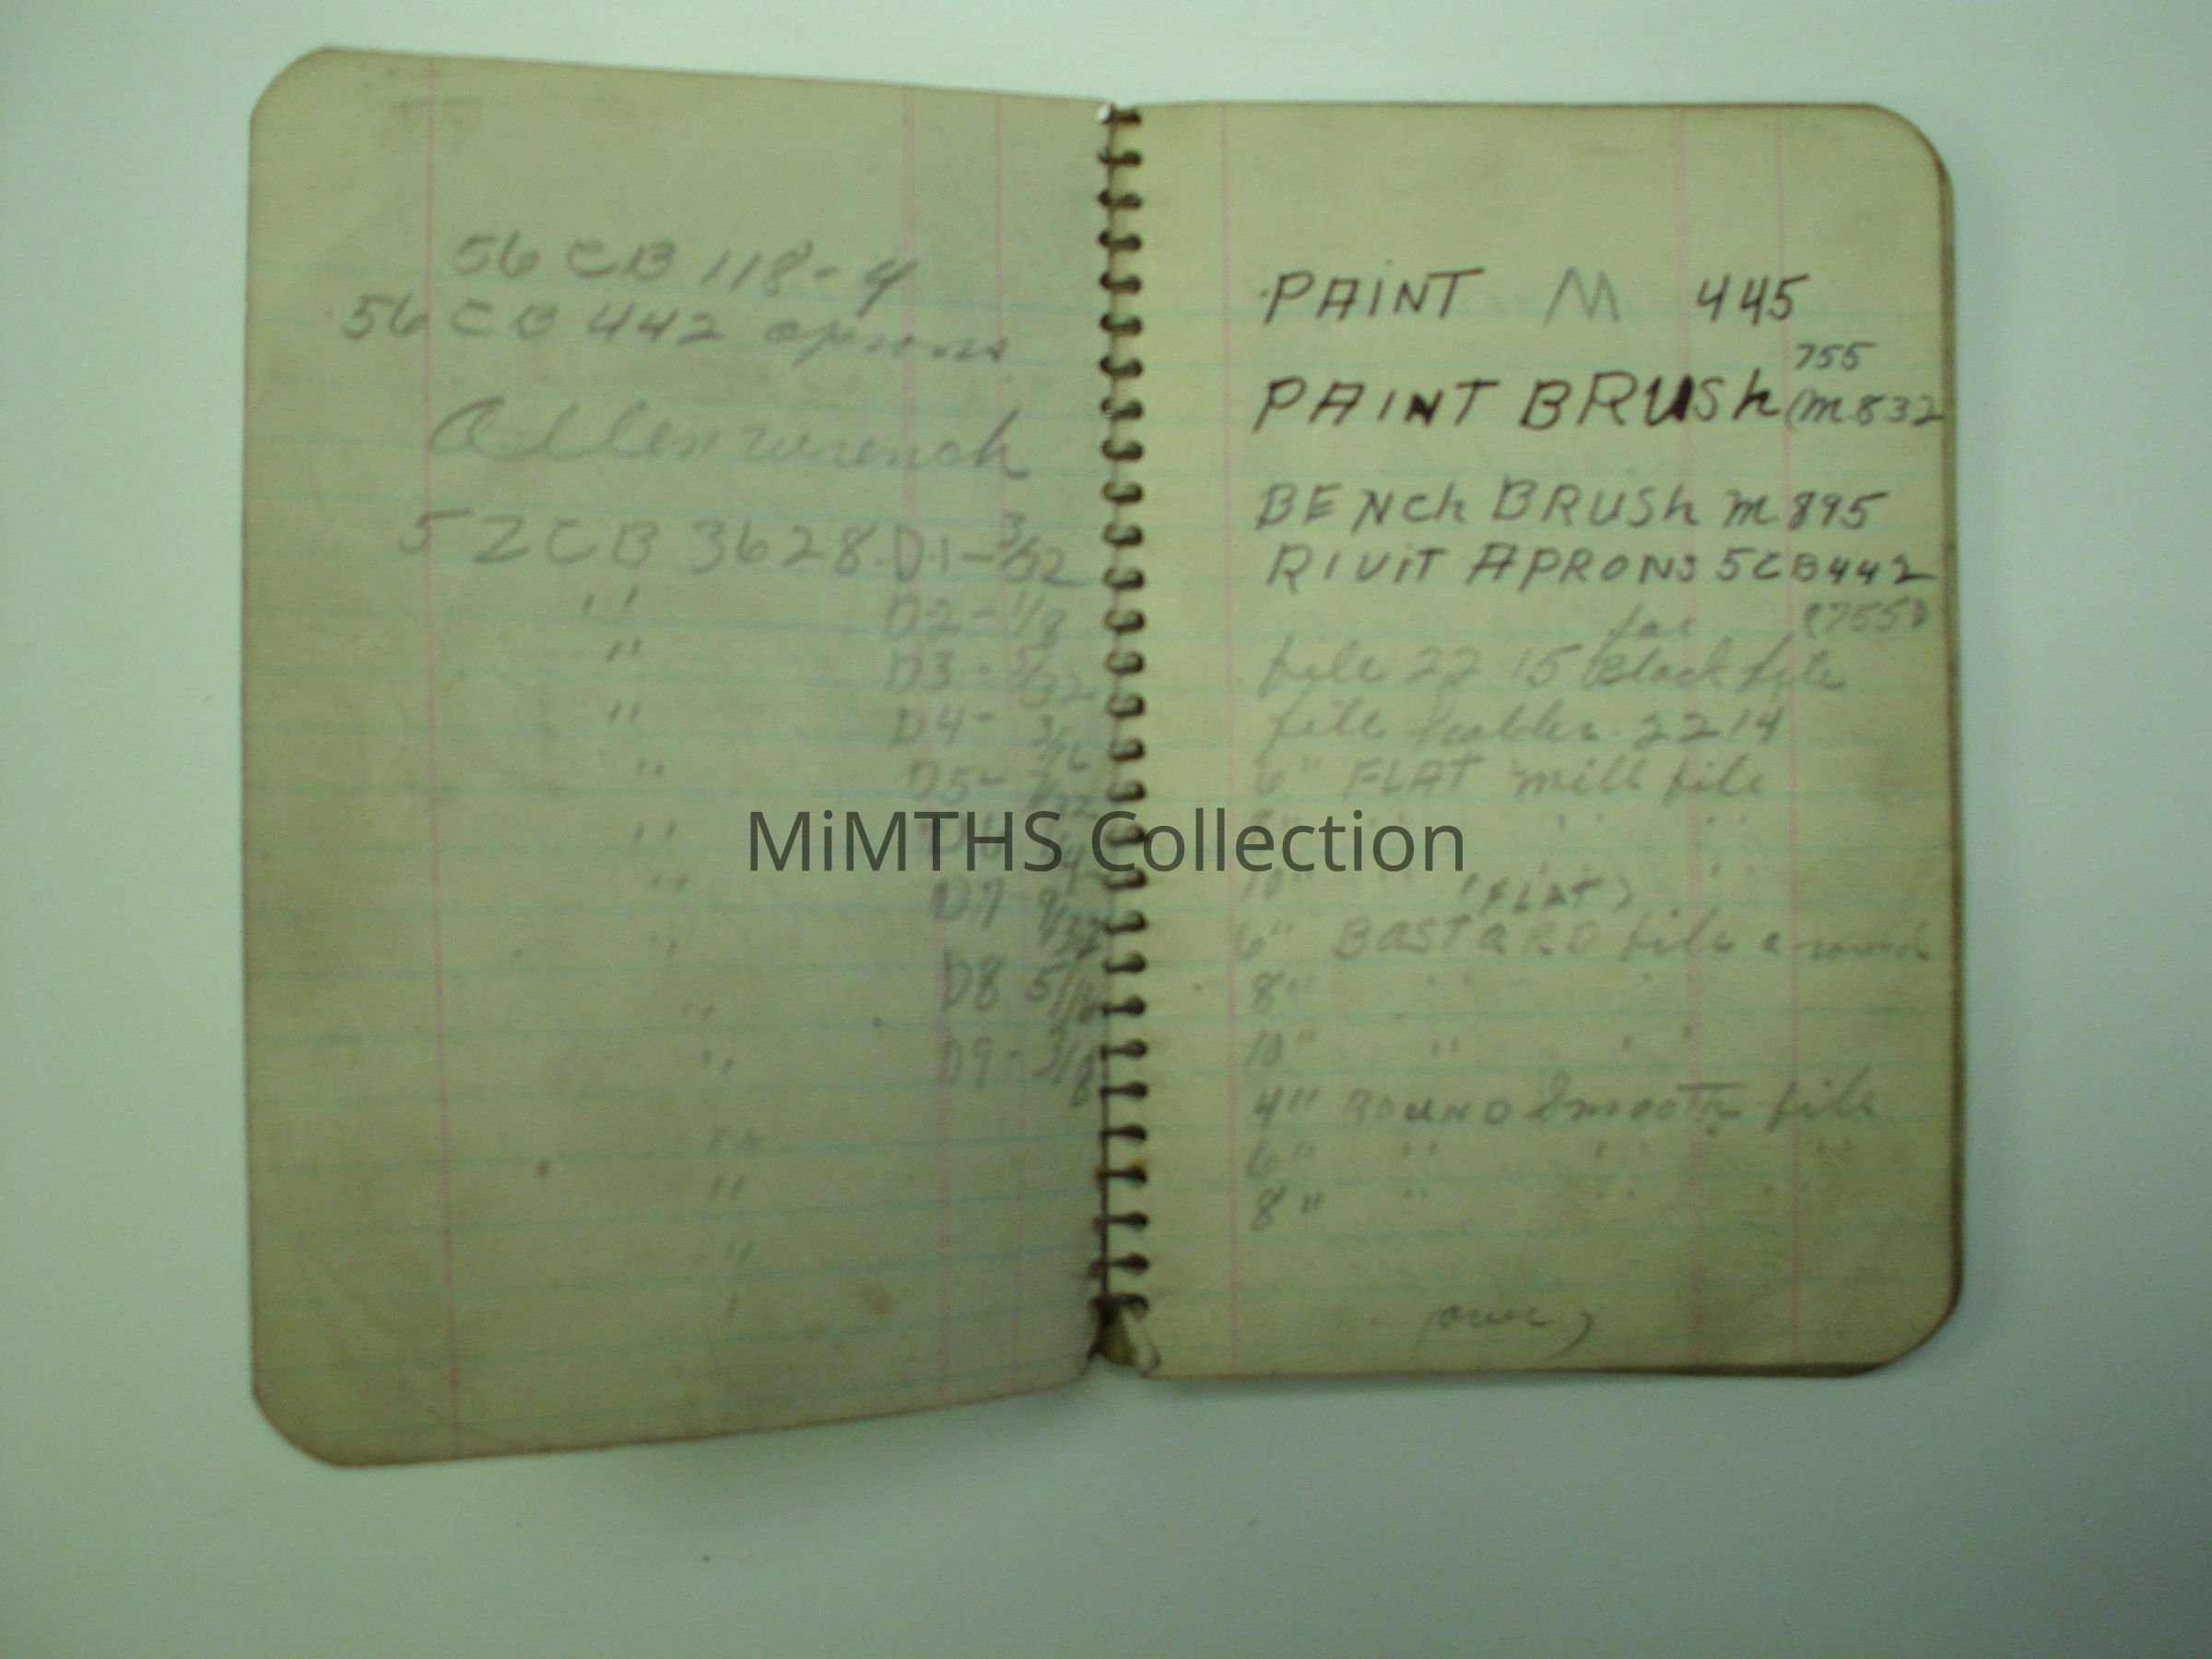 56 CB 118-4
56 CB 442 aprons
Allen wrench
5 Z C B 3628. D.1 - 3/32
" D2 - 1/8
" D3 - 5/32
" D4 - 3/16
" D5 - 7/32
"
" D7 9/32
"
" D8 5/16
" D9 - 3/8
"
"
"
PAINT M 445
755
PAINT BRUSh (M 832
BENCh BRUSh M 895
RIVIT APRONS 5CB442
for
file 22 15 Black file
file 2214
6" FLAT mill file
" " "
10" " "
(FLAT)
6" BASTARD file
8" " "
10" " " "
4" ROUND Smooth file
6" " " "
8" " " "
(over)
MiMTHS Collection